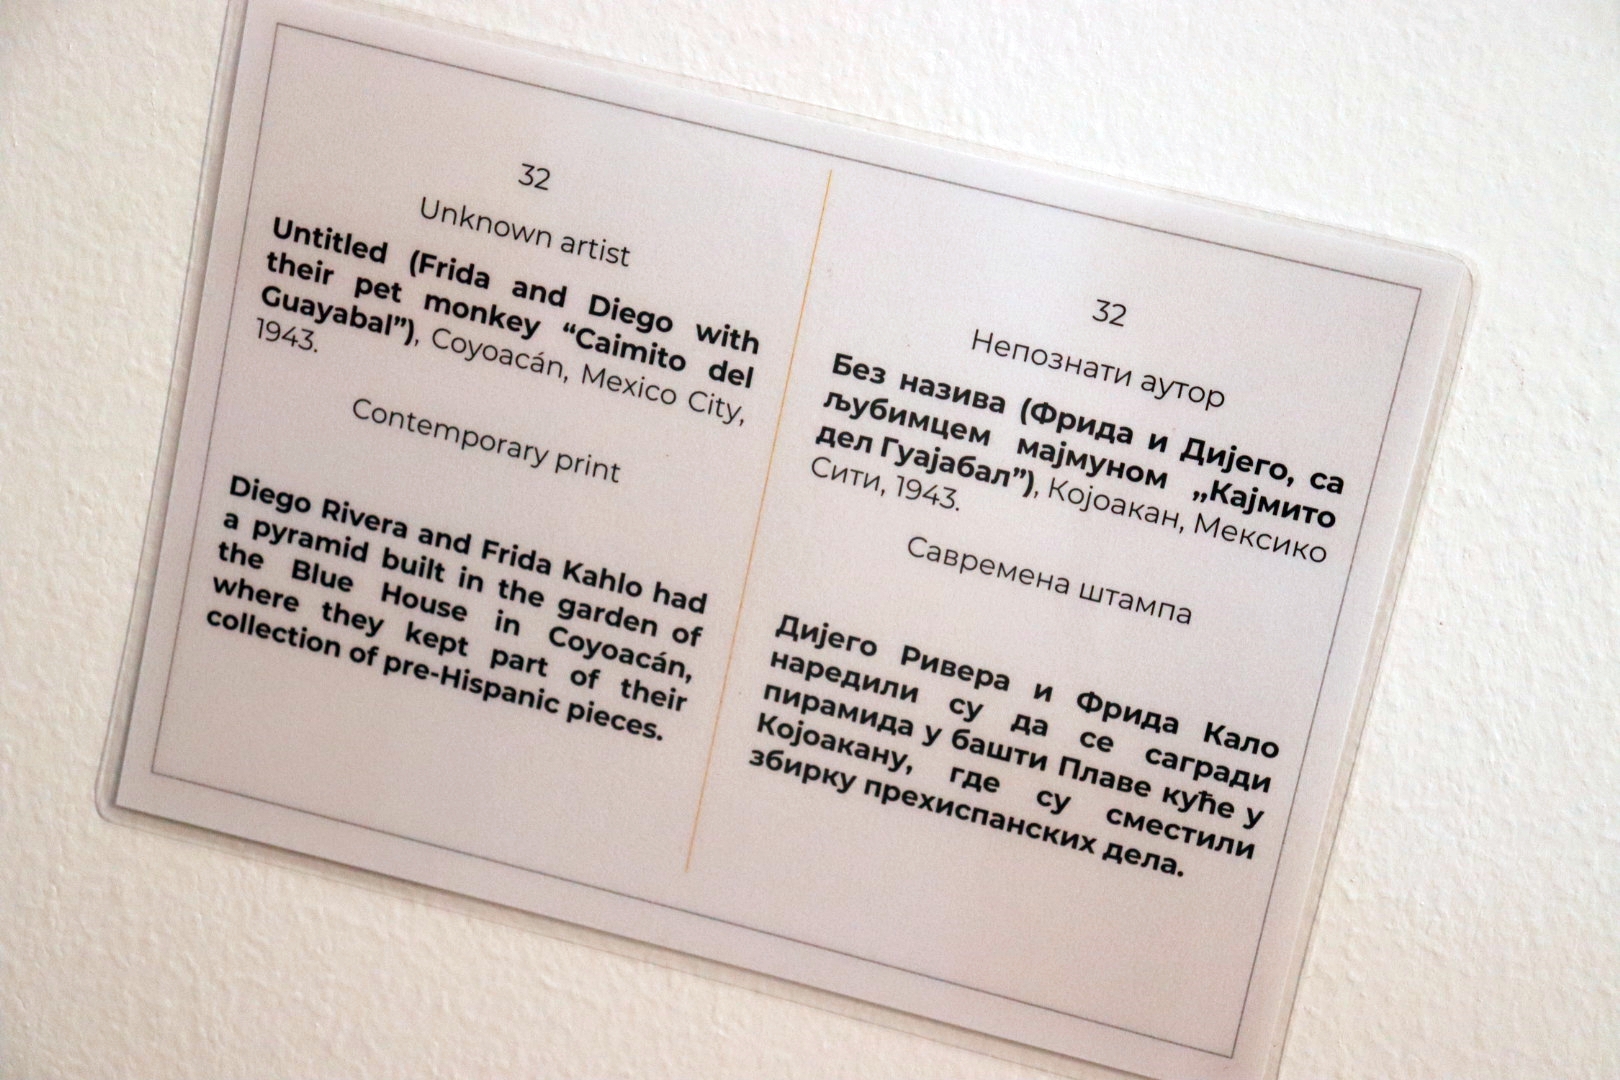 32
Unknown artist
Untitled (Frida and Diego with
their pet monkey “Caimito del
Guayabal”), Coyoacán, Mexico City,
1943.
Contemporary print
Diego Rivera and Frida Kahlo had
a pyramid built in the garden of
the Blue House in Coyoacán,
where they kept part of their
collection of pre-Hispanic pieces.
32
Непознати аутор
Без назива (Фрида и Дијего, са
љубимцем мајмуном „Кајмито
дел Гуајабал”), Којоакан, Мексико
Сити, 1943.
Савремена штампа
Дијего Ривера и Фрида Кало
наредили су да се сагради
пирамида у башти Плаве куће у
Којоакану, где су сместили
збирку прехиспанских дела.